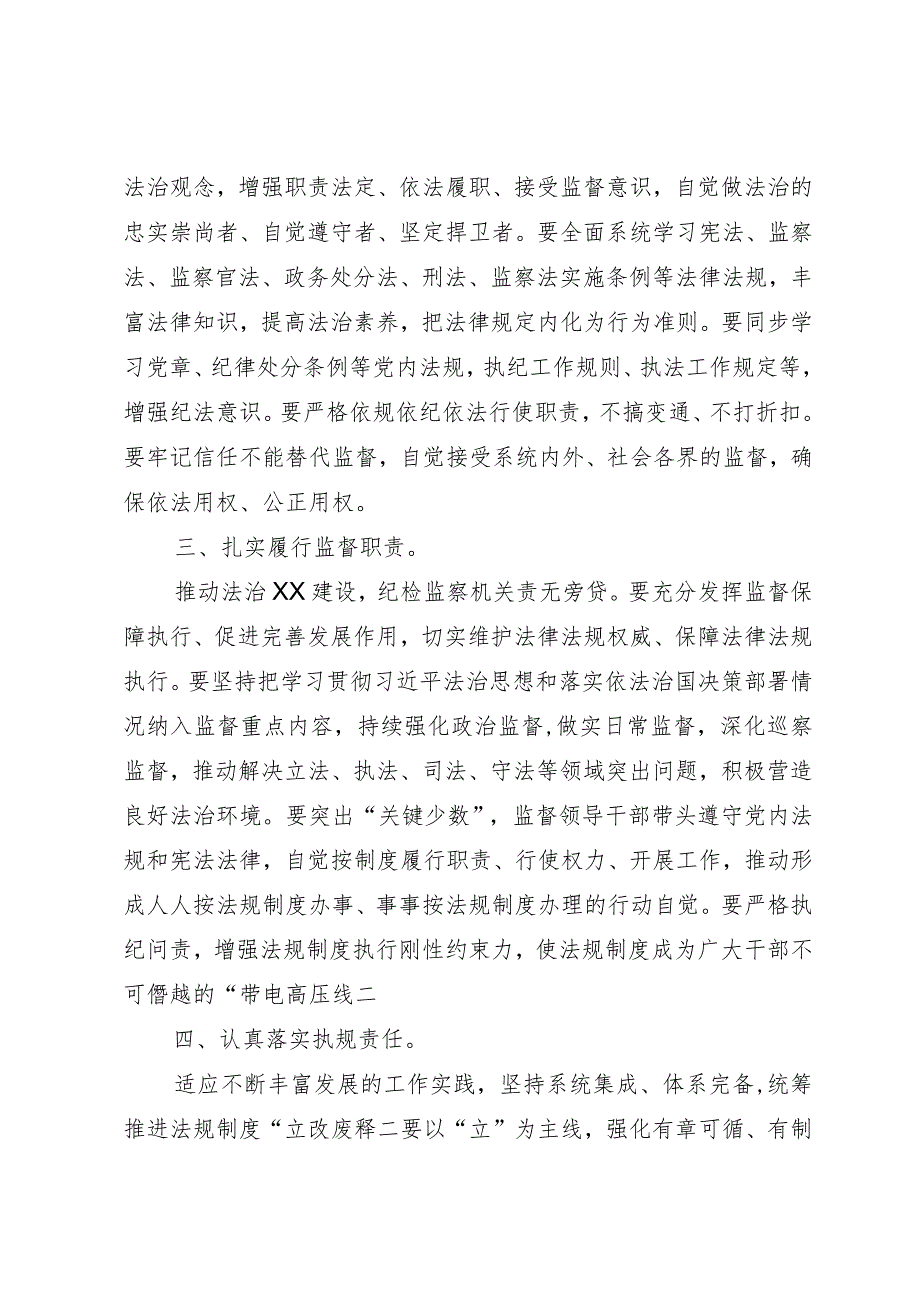 法治观念，增强职责法定、依法履职、接受监督意识，自觉做法治的
忠实崇尚者、自觉遵守者、坚定捍卫者。要全面系统学习宪法、监察
法、监察官法、政务处分法、刑法、监察法实施条例等法律法规，丰
富法律知识，提高法治素养，把法律规定内化为行为准则。要同步学
习党章、纪律处分条例等党内法规，执纪工作规则、执法工作规定等，
增强纪法意识。要严格依规依纪依法行使职责，不搞变通、不打折扣。
要牢记信任不能替代监督，自觉接受系统内外、社会各界的监督，确
保依法用权、公正用权。
三、扎实履行监督职责。
推动法治XX建设，纪检监察机关责无旁贷。要充分发挥监督保
障执行、促进完善发展作用，切实维护法律法规权威、保障法律法规
执行。要坚持把学习贯彻习近平法治思想和落实依法治国决策部署情
况纳入监督重点内容，持续强化政治监督,做实日常监督，深化巡察
监督，推动解决立法、执法、司法、守法等领域突出问题，积极营造
良好法治环境。要突出“关键少数”，监督领导干部带头遵守党内法
规和宪法法律，自觉按制度履行职责、行使权力、开展工作，推动形
成人人按法规制度办事、事事按法规制度办理的行动自觉。要严格执
纪问责，增强法规制度执行刚性约束力，使法规制度成为广大干部不
可僭越的“带电高压线二
四、认真落实执规责任。
适应不断丰富发展的工作实践，坚持系统集成、体系完备,统筹
推进法规制度“立改废释二要以“立”为主线，强化有章可循、有制